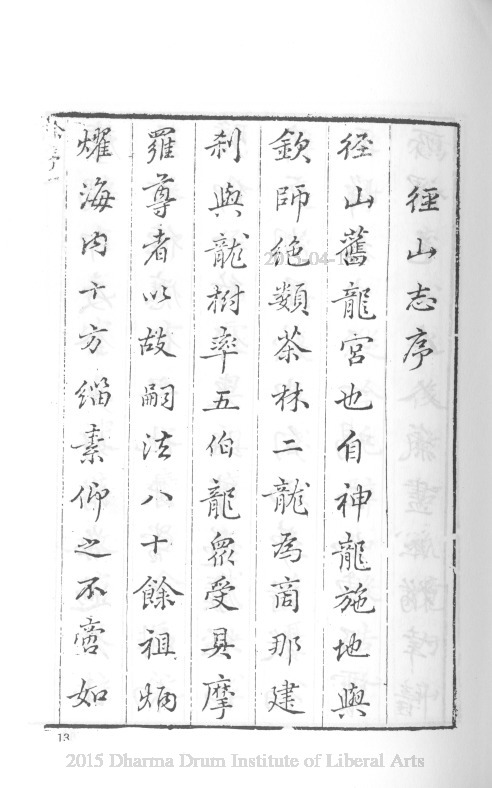 徑山志序
徑山舊龍宮也自神龍施地與
欽師絕類茶林二龍為商那建
剎與龍樹率五伯龍眾受具摩
羅尊者以故嗣法八十餘祖炳
燿海內十方緇素仰之不啻如
13
2015 Dharma Drum Institute of Liberal Arts